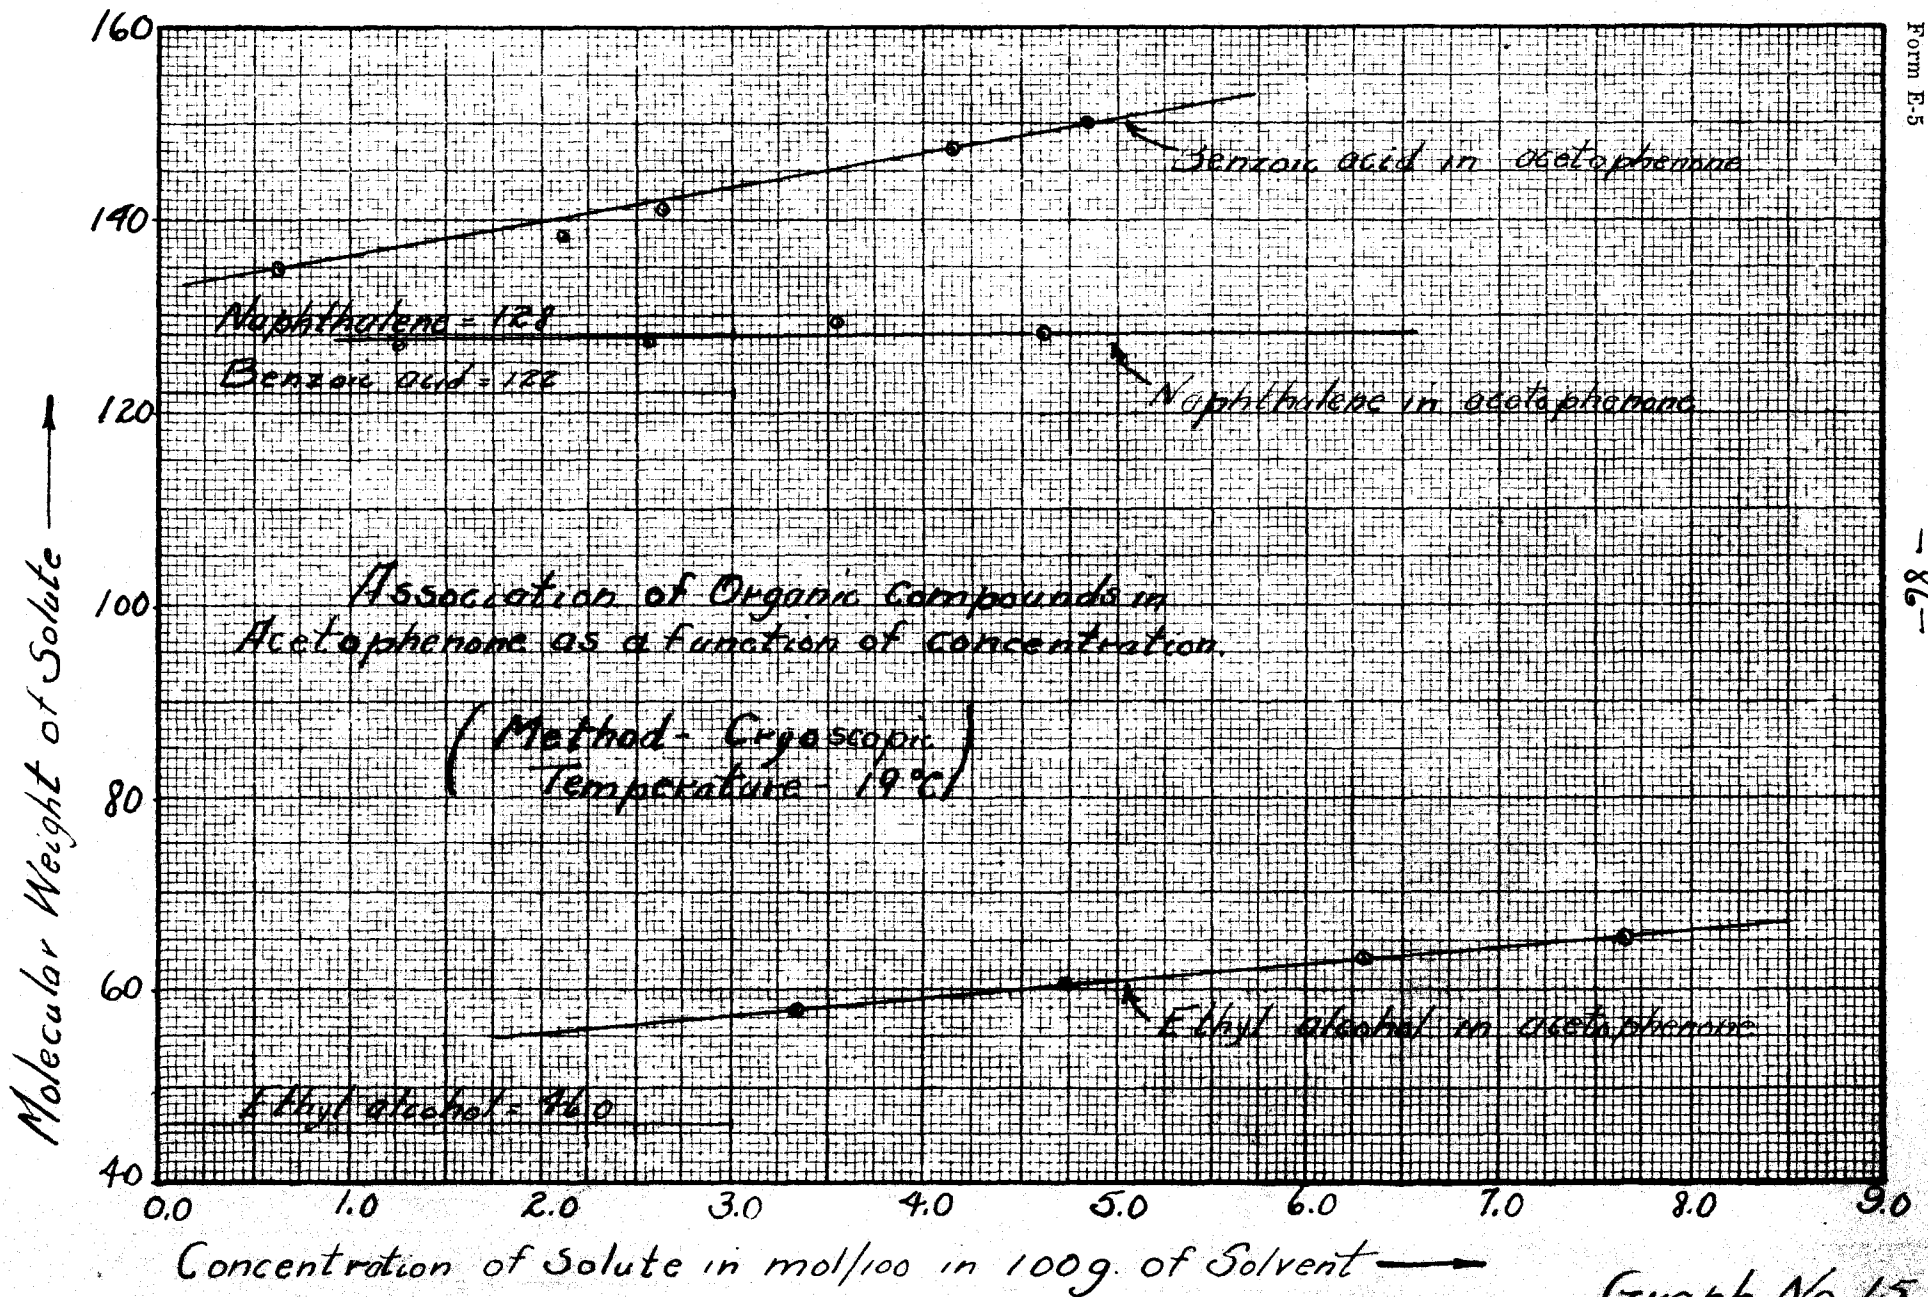 Form E-5
- 86 -
160
140
120
100
80
60
40
Benzoic acid in acetophenone
Naphthalene = 128
Benzoic acid = 122
Naphthalene in acetophenone
Association of Organic Compounds in
Acetophenone as a function of concentration.
(Method - Cryoscopic
Temperature - 19°C)
Ethyl alcohol in acetophenone
Ethyl alcohol = 46.0
0.0 1.0 2.0 3.0 4.0 5.0 6.0 7.0 8.0 9.0
Molecular Weight of Solute
Concentration of Solute in mol/100 in 100g. of Solvent
Graph No. 15